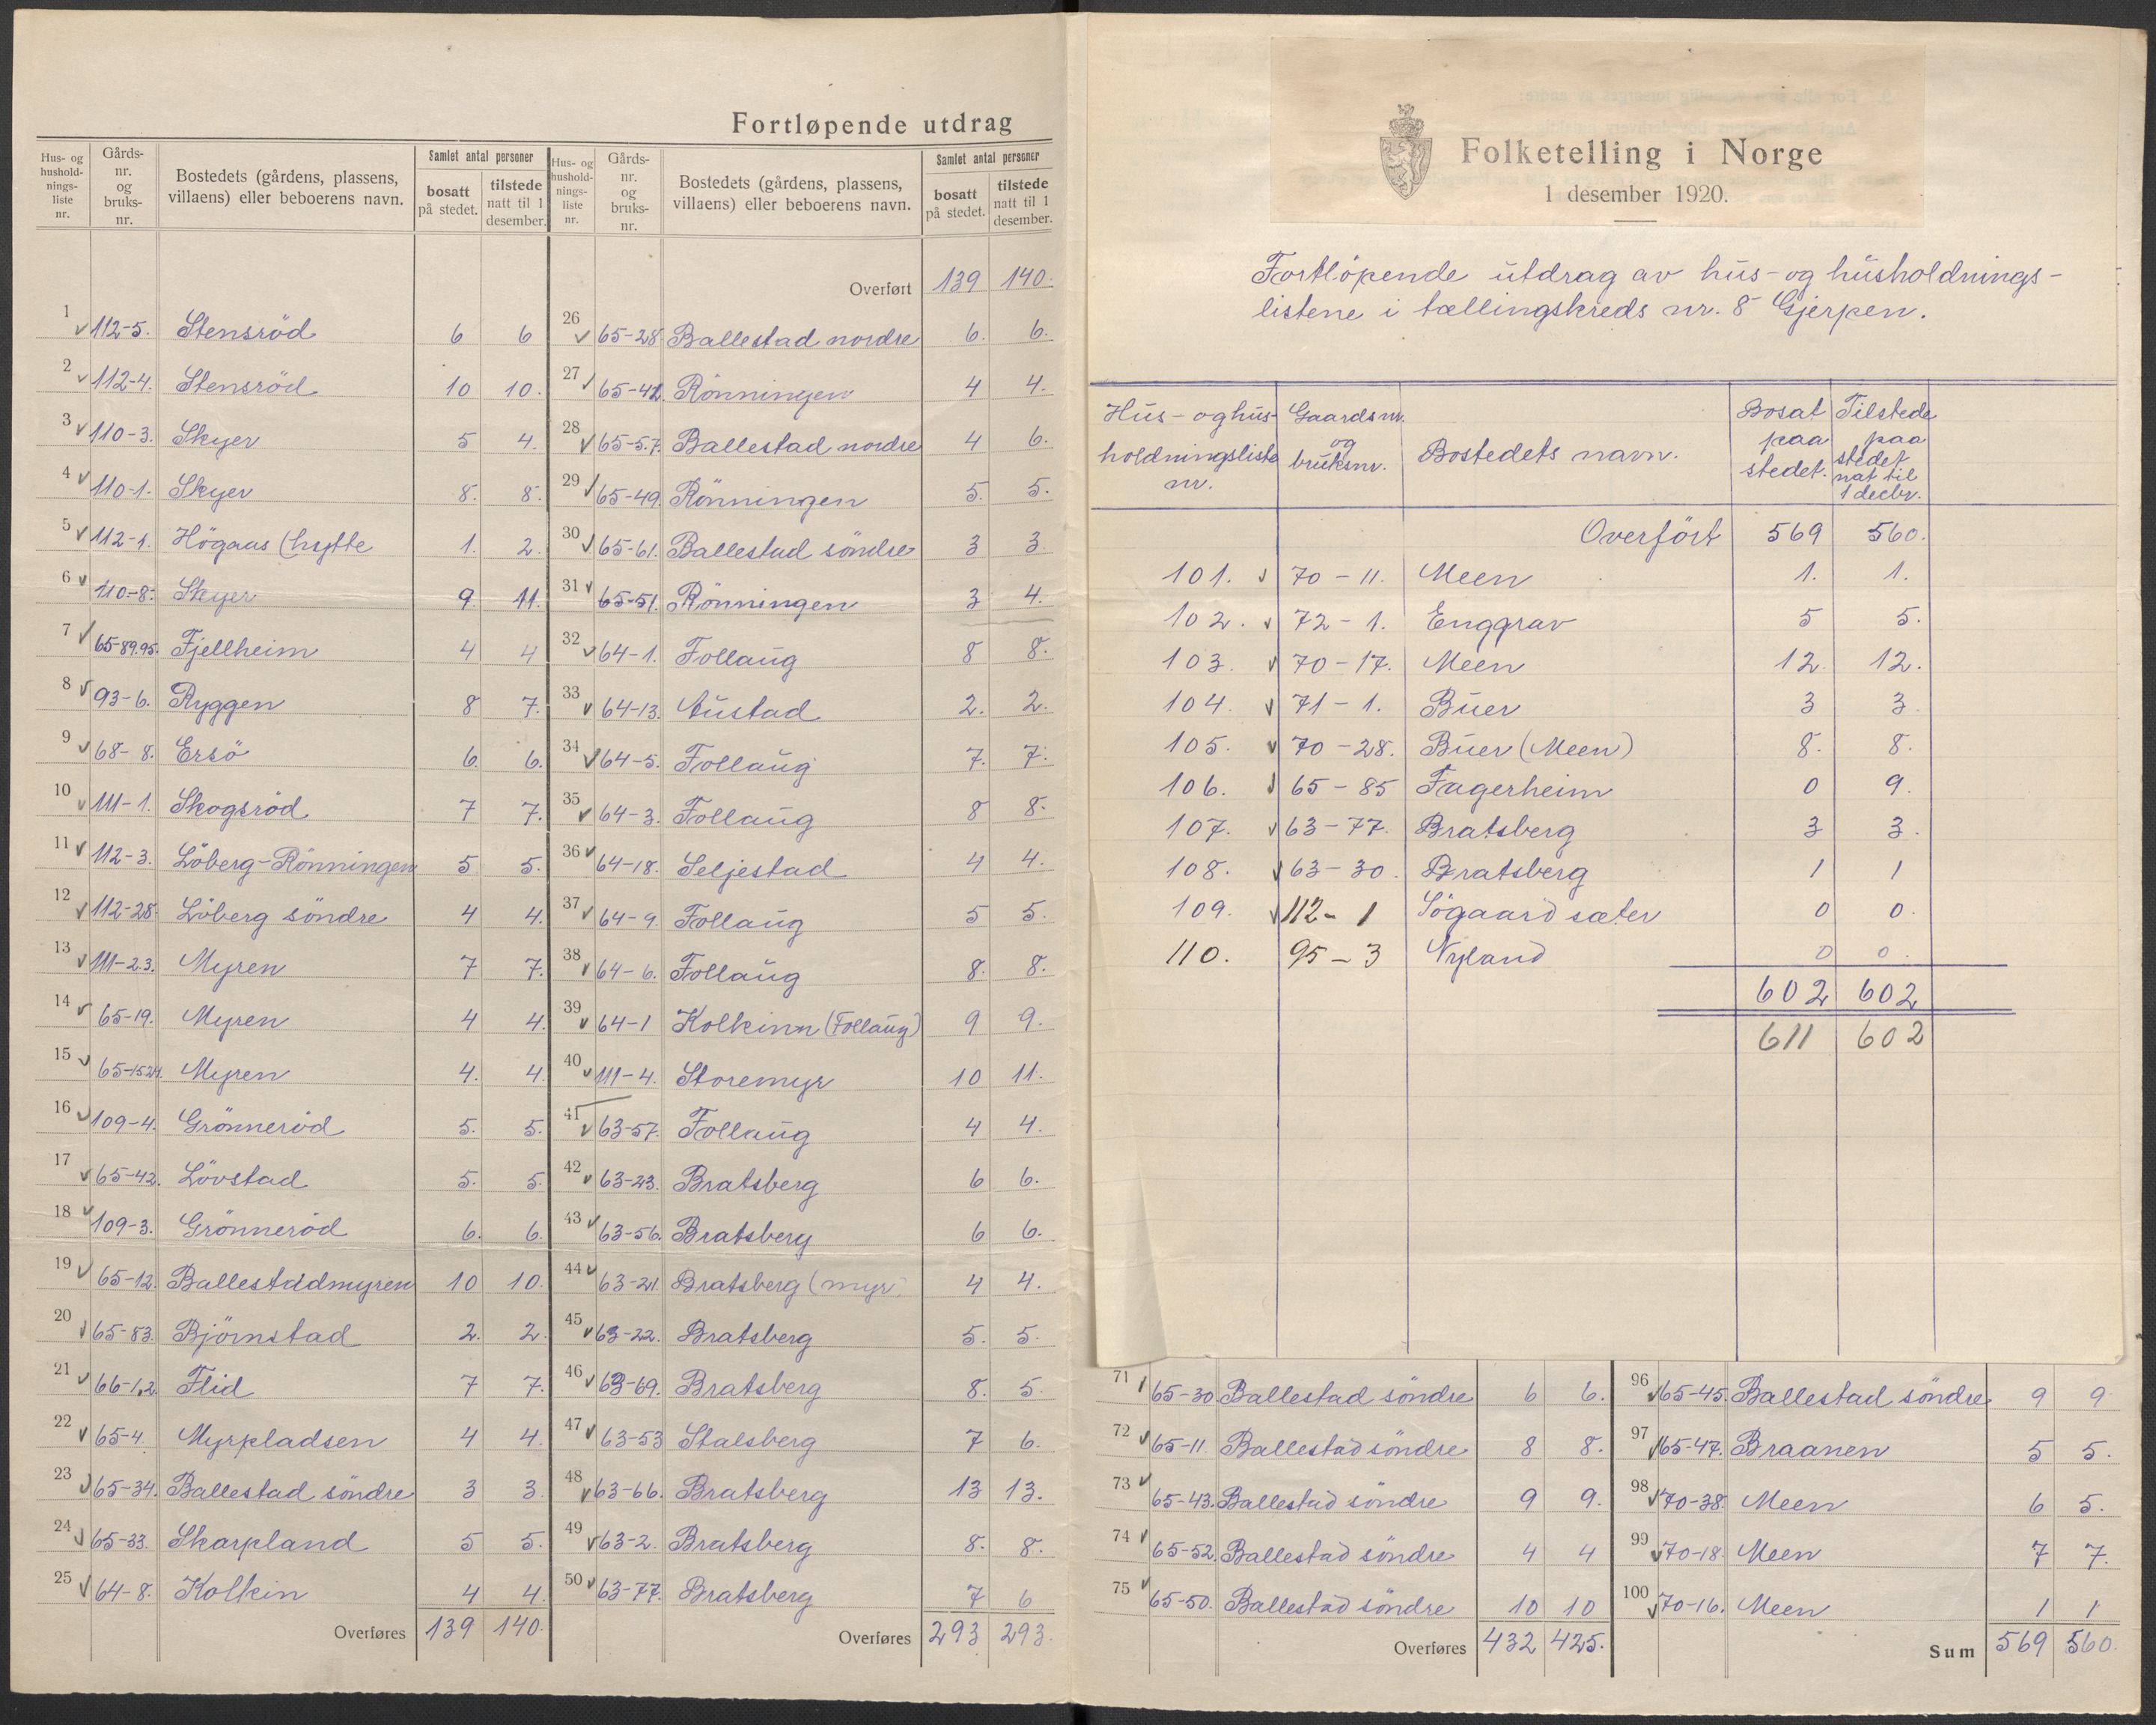 Fortløpende utdrag
Hus- og husholdnings- liste nr. | Gårds- nr. og bruks- nr. | Bostedets (gårdens, plassens, villaens) eller beboerens navn. | Samlet antal personer | bosatt på stedet. | tilstede natt til 1 desember.
1 112-5. Stensröd 6 6
2 112-4. Stensröd 10 10.
3 110-3. Skyer 5 4.
4 110-1. Skyer 8. 8.
5 112-1. Högaas (hytte 1. 2.
6 110-8. Skyer 9. 11.
7 65-89.95. Fjellheim 4 4
8 93-6. Ryggen 8 7.
9 68-8. Ersö 6 6.
10 111-1. Skogsröd 7 7.
11 112-3. Löberg-Rönningen 5 5.
12 112-28. Löberg söndre 4 4.
13 111-2.3. Myren 7 7.
14 65-19. Myren 4 4.
15 65-15.24. Myren 4. 4.
16 109-4. Grönneröd 5. 5.
17 65-42. Lövstad 5. 5.
18 109-3. Grönneröd 6. 6.
19 65-12. Ballestadmyren 10 10.
20 65-83. Björnstad 2. 2.
21 66-1,2. Flid 7 7.
22 65-4. Myrpladsen 4 4.
23 65-34. Ballestad söndre 3 3
24 65-33. Skarpland 5 5.
25 64-8. Kolkin 4 4.
Overføres 139 140.
Hus- og husholdnings- liste nr. | Gårds- nr. og bruks- nr. | Bostedets (gårdens, plassens, villaens) eller beboerens navn. | Samlet antal personer | bosatt på stedet. | tilstede natt til 1 desember.
Overført 139 140.
26 65-28 Ballestad nordre 6. 6.
27 65-41. Rönningen 4 4.
28 65-57. Ballestad nordre 4 6.
29 65-49. Rönningen 5. 5.
30 65-61. Ballestad söndre 3 3.
31 65-51. Rönningen 3 4.
32 64-1. Follaug 8 8.
33 64-13. Austad 2. 2.
34 64-5. Follaug 7. 7.
35 64-3. Follaug 8 8.
36 64-18. Seljestad 4 4.
37 64-9. Follaug 5 5.
38 64-6. Follaug 8. 8.
39 64-1 Kolkinn (Follaug) 9 9.
40 111-4. Storemyr 10 11.
41 63-57. Follaug 4 4.
42 63-23. Bratsberg 6 6.
43 63-56. Bratsberg 6 6.
44 63-21. Bratsberg (myr) 4 4.
45 63-22. Bratsberg 5. 5.
46 63-69. Bratsberg 8. 5.
47 63-53 Stalsberg 7 6.
48 63-66. Bratsberg 13 13.
49 63-2. Bratsberg 8. 8.
50 63-77. Bratsberg 7 6
Overføres 293 293.
Folketelling i Norge
1 desember 1920.
Fortlöpende utdrag av hus- og husholdnings-
listene i tællingskreds nr. 8 Gjerpen.
Hus- og husholdningsliste nr. | Gaardsnr. og bruksnr. | Bostedets navn. | Bosat paa stedet. | Tilstede paa stedet nat til 1 decbr.
Overfört 569 560.
101. 70-11. Meen 1. 1.
102. 72-1. Enggrav 5 5.
103. 70-17. Meen 12. 12.
104. 71-1. Buer 3 3.
105. 70-28. Buer (Meen) 8. 8.
106. 65-85 Fagerheim 0 9.
107. 63-77. Bratsberg 3 3.
108. 63-30. Bratsberg 1 1
109. 112-1 Sögaard sæter 0 0.
110. 95-3 Nyland 0 0.
602 602
611 602
71 65-30 Ballestad söndre 6 6.
72 65-11. Ballestad söndre 8 8.
73 65-43. Ballestad söndre 9 9.
74 65-52. Ballestad söndre 4 4
75 65-50. Ballestad söndre 10 10
Overføres 432 425.
96 65-45. Ballestad söndre 9 9
97 65-47. Braanen 5 5.
98 70-38. Meen 6 5.
99 70-18. Meen 7 7.
100 70-16. Meen 1 1
Sum 569 560.